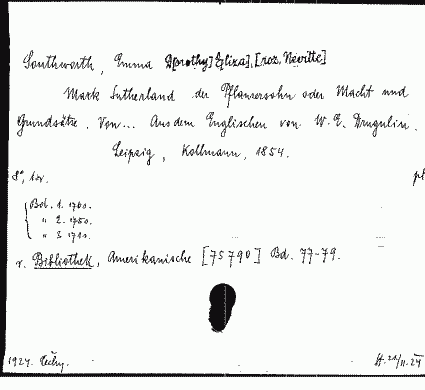 Southworth, Emma D[orothy] E[liza], [roz. Nevitte]
Mark Sutherland der Pflanzersohn oder Macht und
Grundsätze. Von... Aus dem Englischen von W. E. Drugulin.
Leipzig, Kollmann, 1854.
8°, 1 sv.
Bd. 1. 1700.
" 2. 1750.
" 3.
v. Bibliothek, Amerikanische [75790] Bd. 77-79.
1924. Čechy.